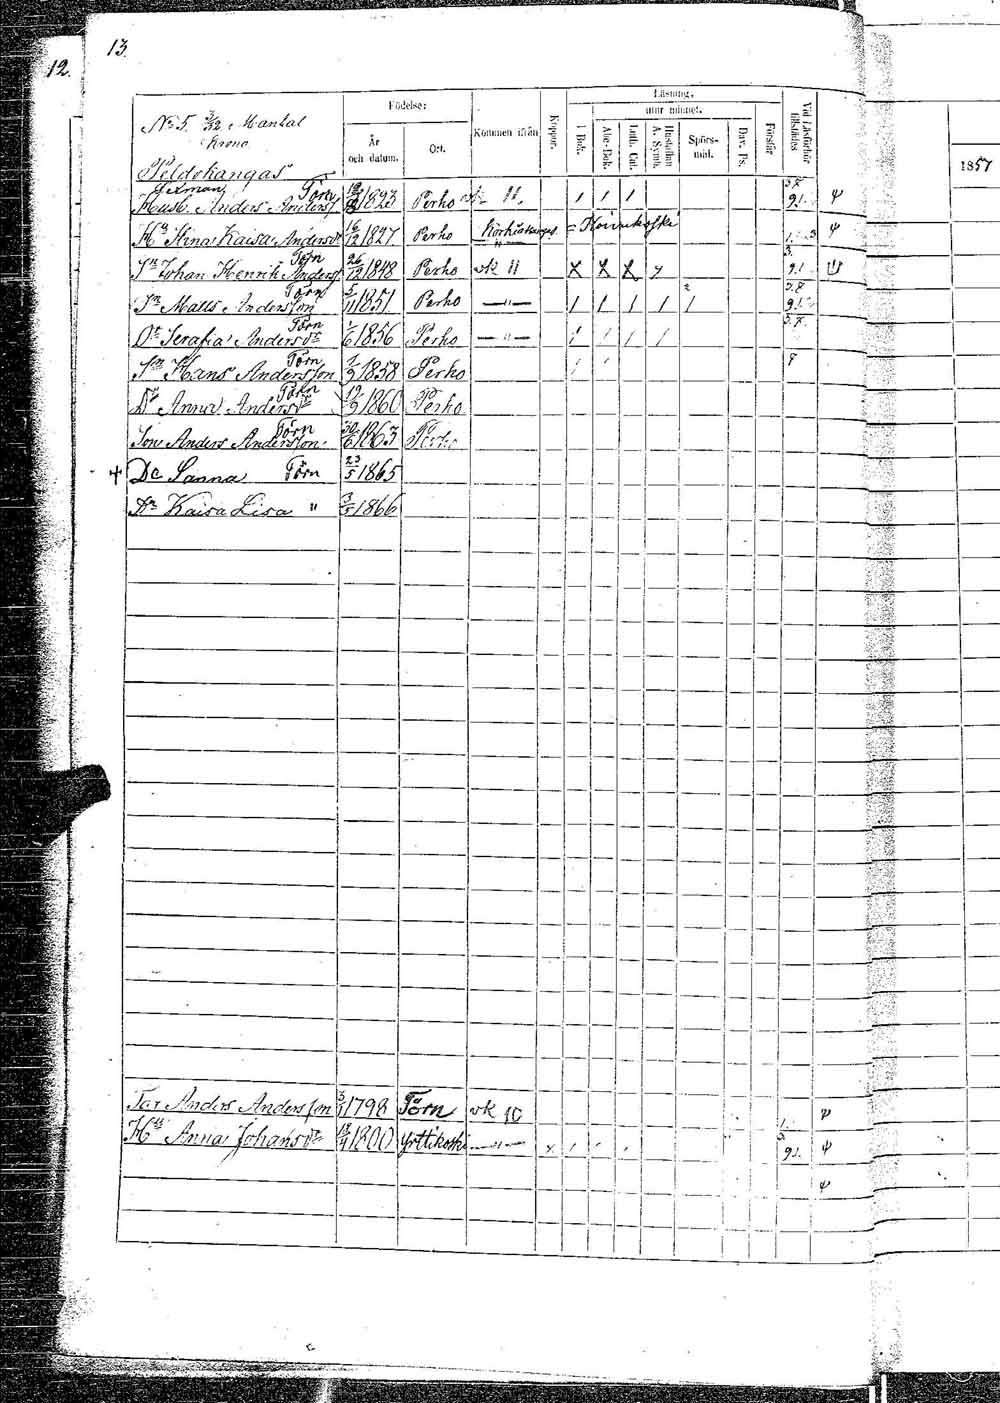 13.
12.
No 5. 3/32 Mantal
Krono
Peldokangas
Födelse:
År och datum.
Ort.
Kommen ifrån
Koppor.
Läsning.
utur minnet.
I Bok.
Abc-Bok.
Luth. Cat.
Hustaflan A. Symb.
Spörs-mål.
Dav. Ps.
Förstår
Vid Läsförhör tillstädes
1857
Husb. Anders Anderss Törn 1823 Perho 11.
Ha Stina Kaisa Andersdr 16/12 1827 Perho Körkiökangas = Koivukoski
Sn Johan Henrik Anderss Törn 26/12 1848 Perho vk 11
Sn Matts Andersson Törn 5/11 1851 Perho — " —
Dr Serafia Andersdr Törn 1/6 1856 Perho — " —
Sn Hans Andersson Törn 1/9 1858 Perho
Dr Anna Andersdr Törn 19/9 1860 Perho
Son Anders Andersson Törn 30/6 1863 Perho
Dr Sanna Törn 23/5 1865
Dr Kaisa Lisa " 3/5 1866
Far Anders Andersson 1798 Törn vk 10
Hu Anna Johansdr 1800 Yrttikoski — " —